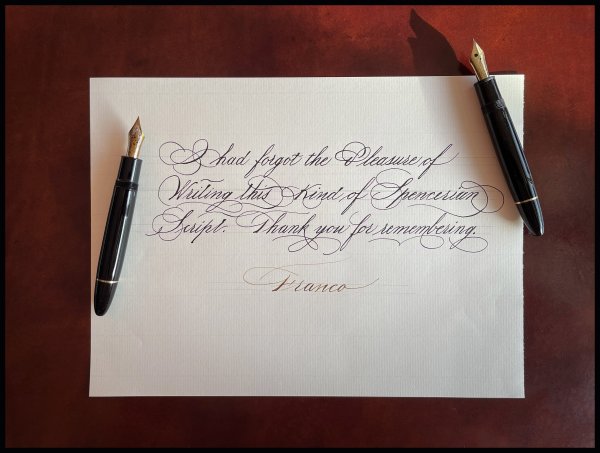 I had forgot the Pleasure of
Writing this Kind of Spencerian
Script. Thank you for remembering.
Franco